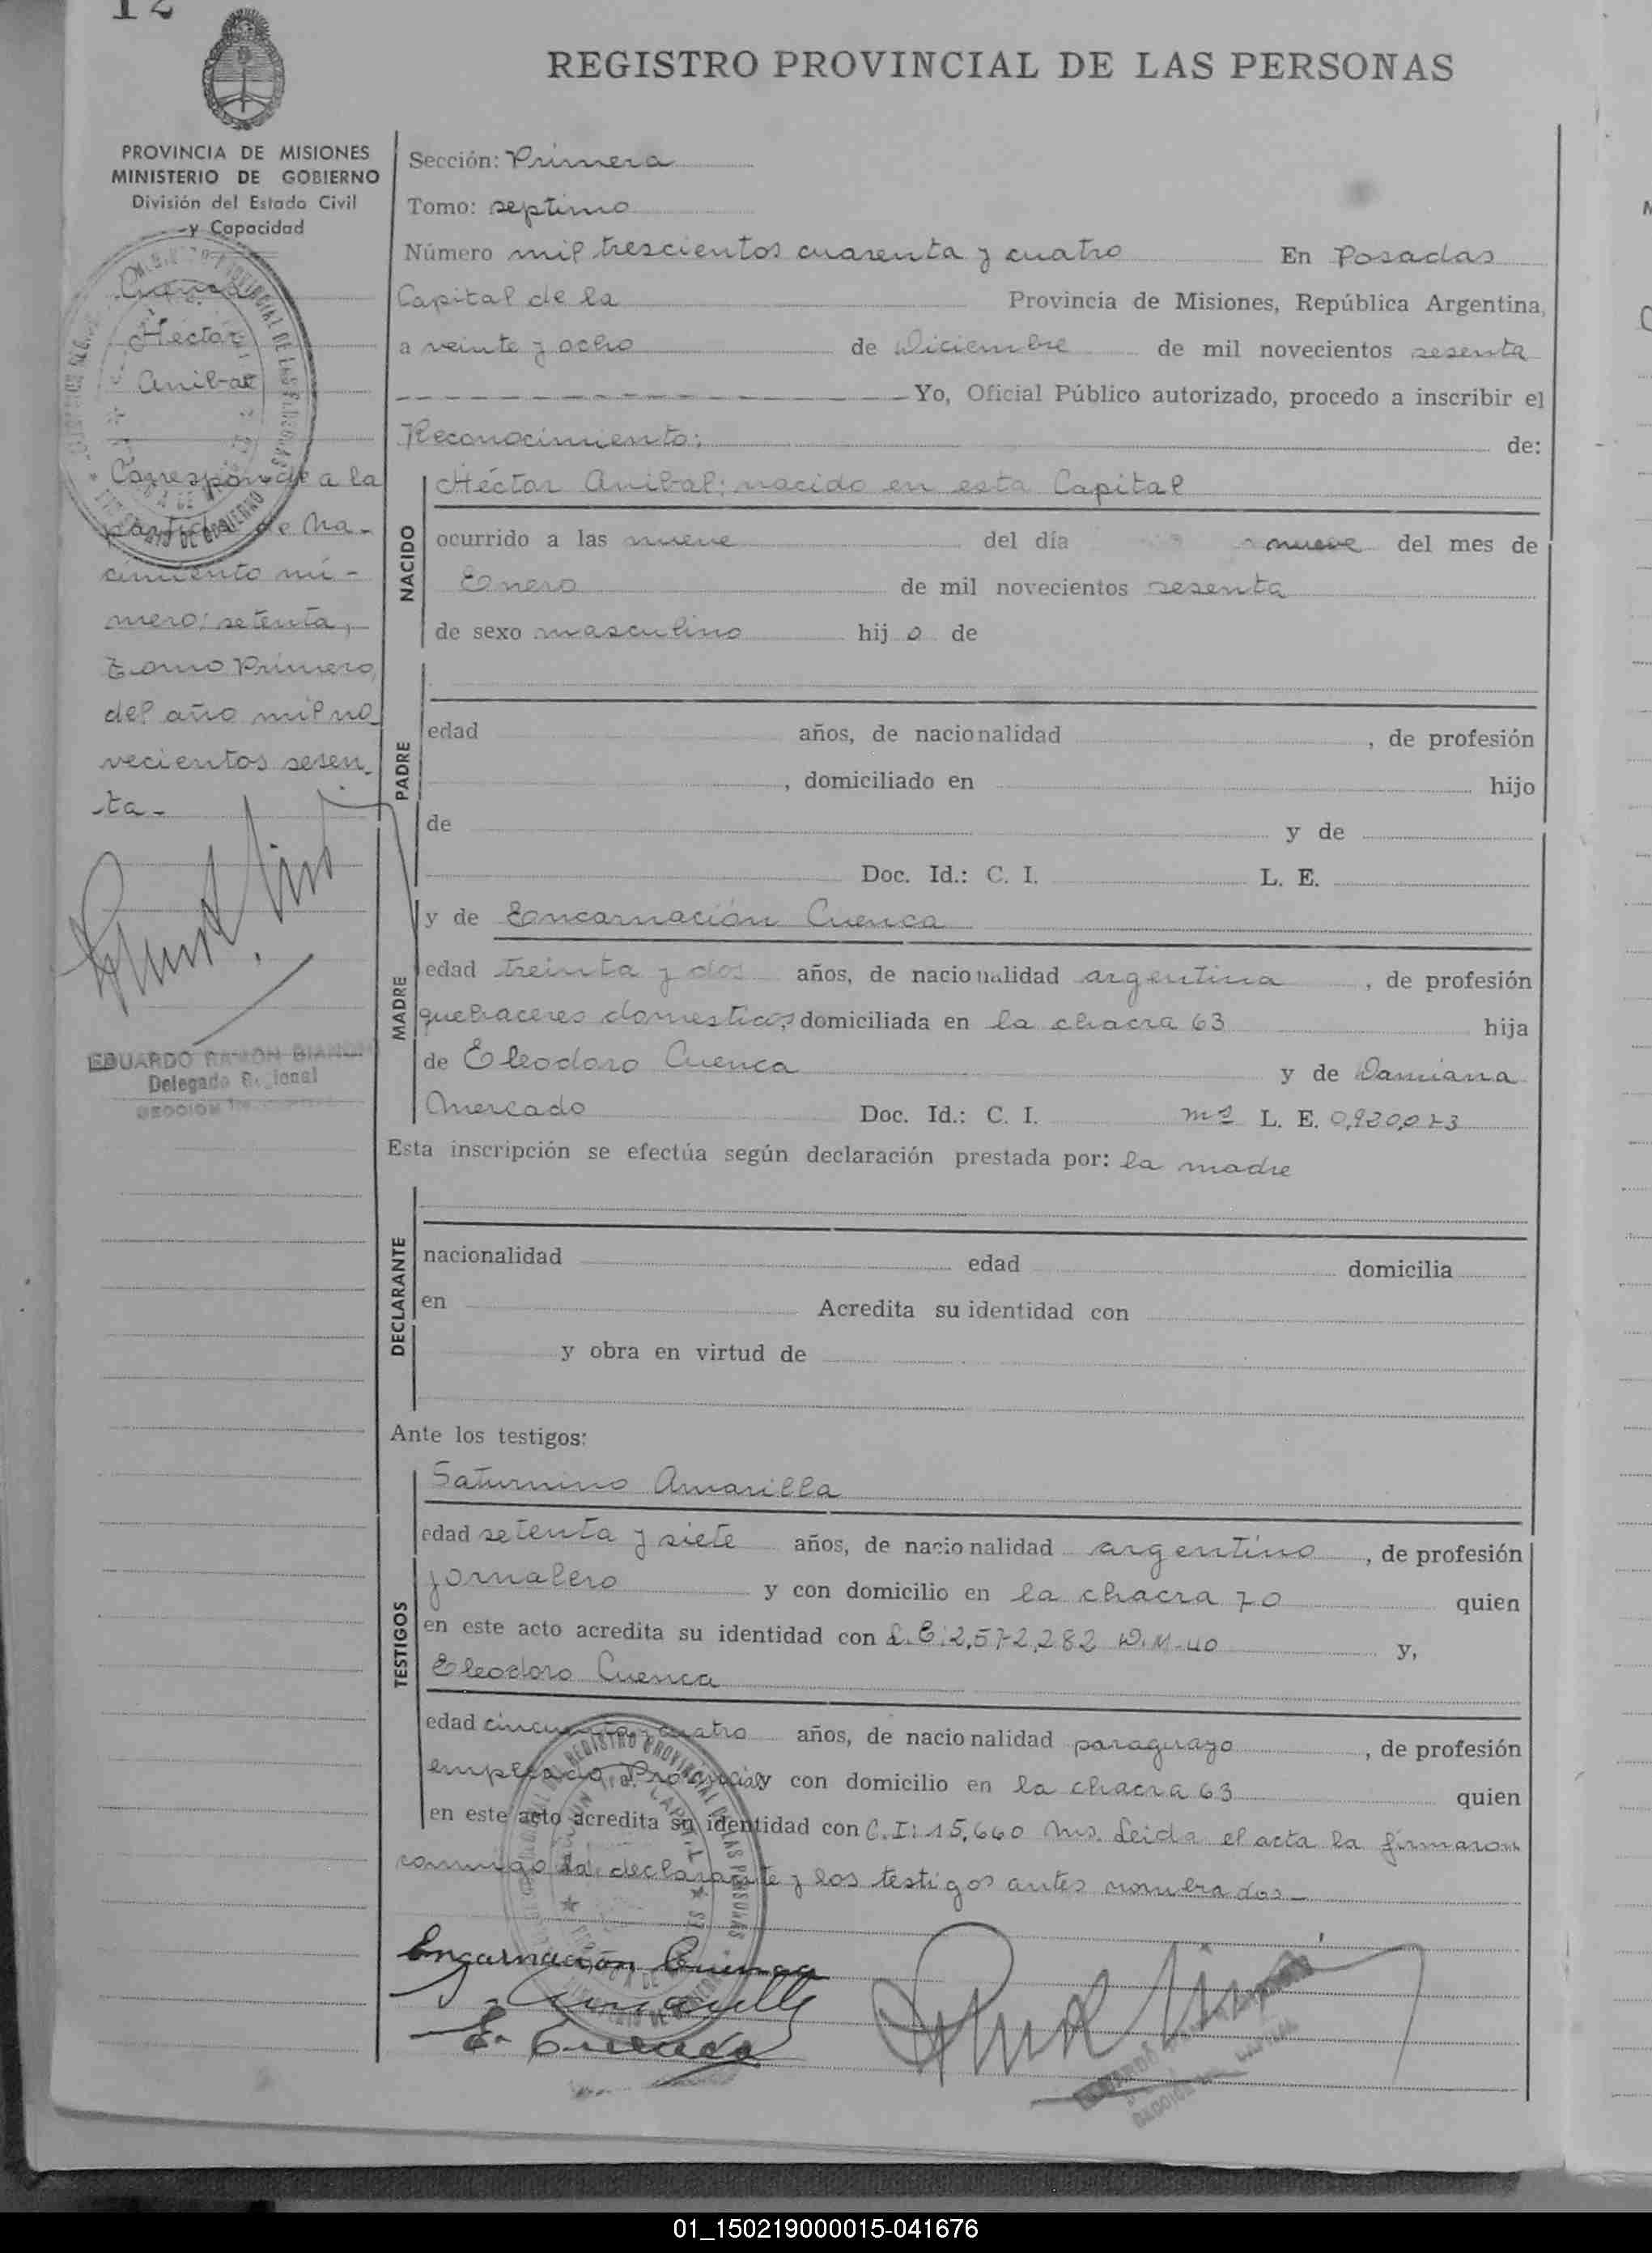 12
REGISTRO PROVINCIAL DE LAS PERSONAS
PROVINCIA DE MISIONES
MINISTERIO DE GOBIERNO
División del Estado Civil
y Capacidad
Cuenca
Héctor
Anibal
Corresponde a la
partida de Na-
cimiento nú-
mero: setenta,
Tomo Primero,
del año mil no
vecientos sesen
ta-
EDUARDO RAMON
Delegado
Sección: Primera
Tomo: septimo
Número mil trescientos cuarenta y cuatro En Posadas
Capital de la Provincia de Misiones, República Argentina,
a veinte y ocho de Diciembre de mil novecientos sesenta
Yo, Oficial Público autorizado, procedo a inscribir el
Reconocimiento: de:
NACIDO
Héctor Anibal; nacido en esta Capital
ocurrido a las nueve del día nueve del mes de
Enero de mil novecientos sesenta
de sexo masculino hij o de
PADRE
edad años, de nacionalidad , de profesión
, domiciliado en hijo
de y de
Doc. Id.: C. I. L. E.
MADRE
y de Encarnación Cuenca
edad treinta y dos años, de nacionalidad argentina , de profesión
quehaceres domesticos, domiciliada en la chacra 63 hija
de Eleodoro Cuenca y de Damiana
Mercado Doc. Id.: C. I. L. E.
Esta inscripción se efectúa según declaración prestada por: la madre
DECLARANTE
nacionalidad edad domicilia
en Acredita su identidad con
y obra en virtud de
Ante los testigos:
TESTIGOS
Saturnino Amarilla
edad setenta y siete años, de nacionalidad argentino , de profesión
jornalero y con domicilio en la chacra 70 quien
en este acto acredita su identidad con L.E: 2,572,282 D.M-40 y,
Eleodoro Cuenca
edad cincuenta y cuatro años, de nacionalidad paraguayo , de profesión
empleado Provincial y con domicilio en la chacra 63 quien
en este acto acredita su identidad con C.I: 15,660 Mns. Leida el acta la firmaron
conmigo la declarante y los testigos antes nombrados-
Encarnación Cuenca
S. Amarilla
E. Cuenca
01_150219000015-041676